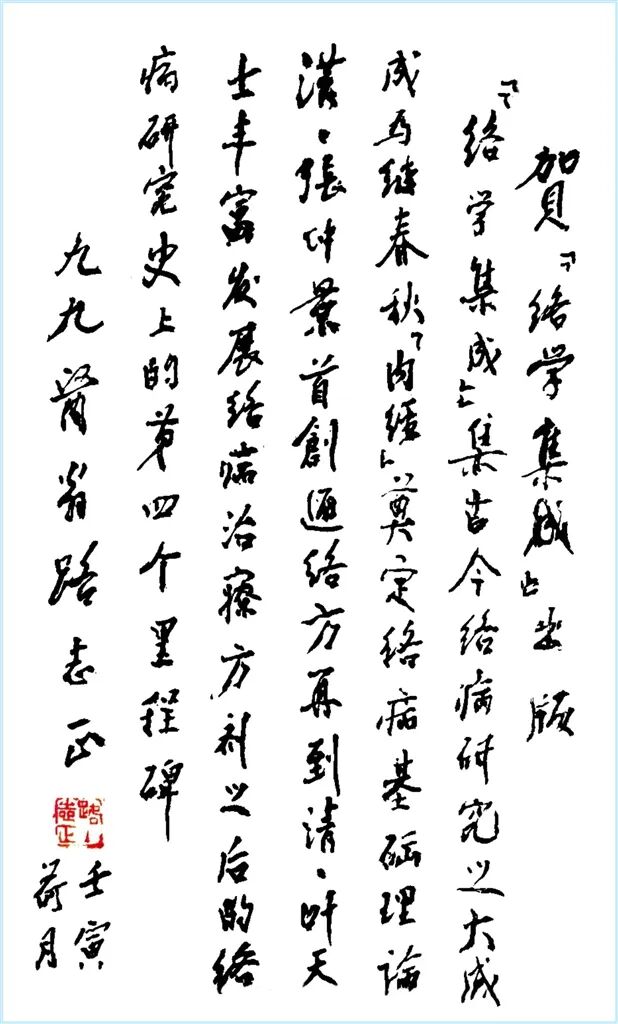 賀『络学集成』出版
『络学集成』集古今络病研究之大成
成为继春秋『内经』奠定络病基础理论
漢、張仲景首創通络方再到清、叶天
士丰富发展络病治療方剂之后的络
病研究史上的第四个里程碑
九九醫翁路志正
壬寅
荷月